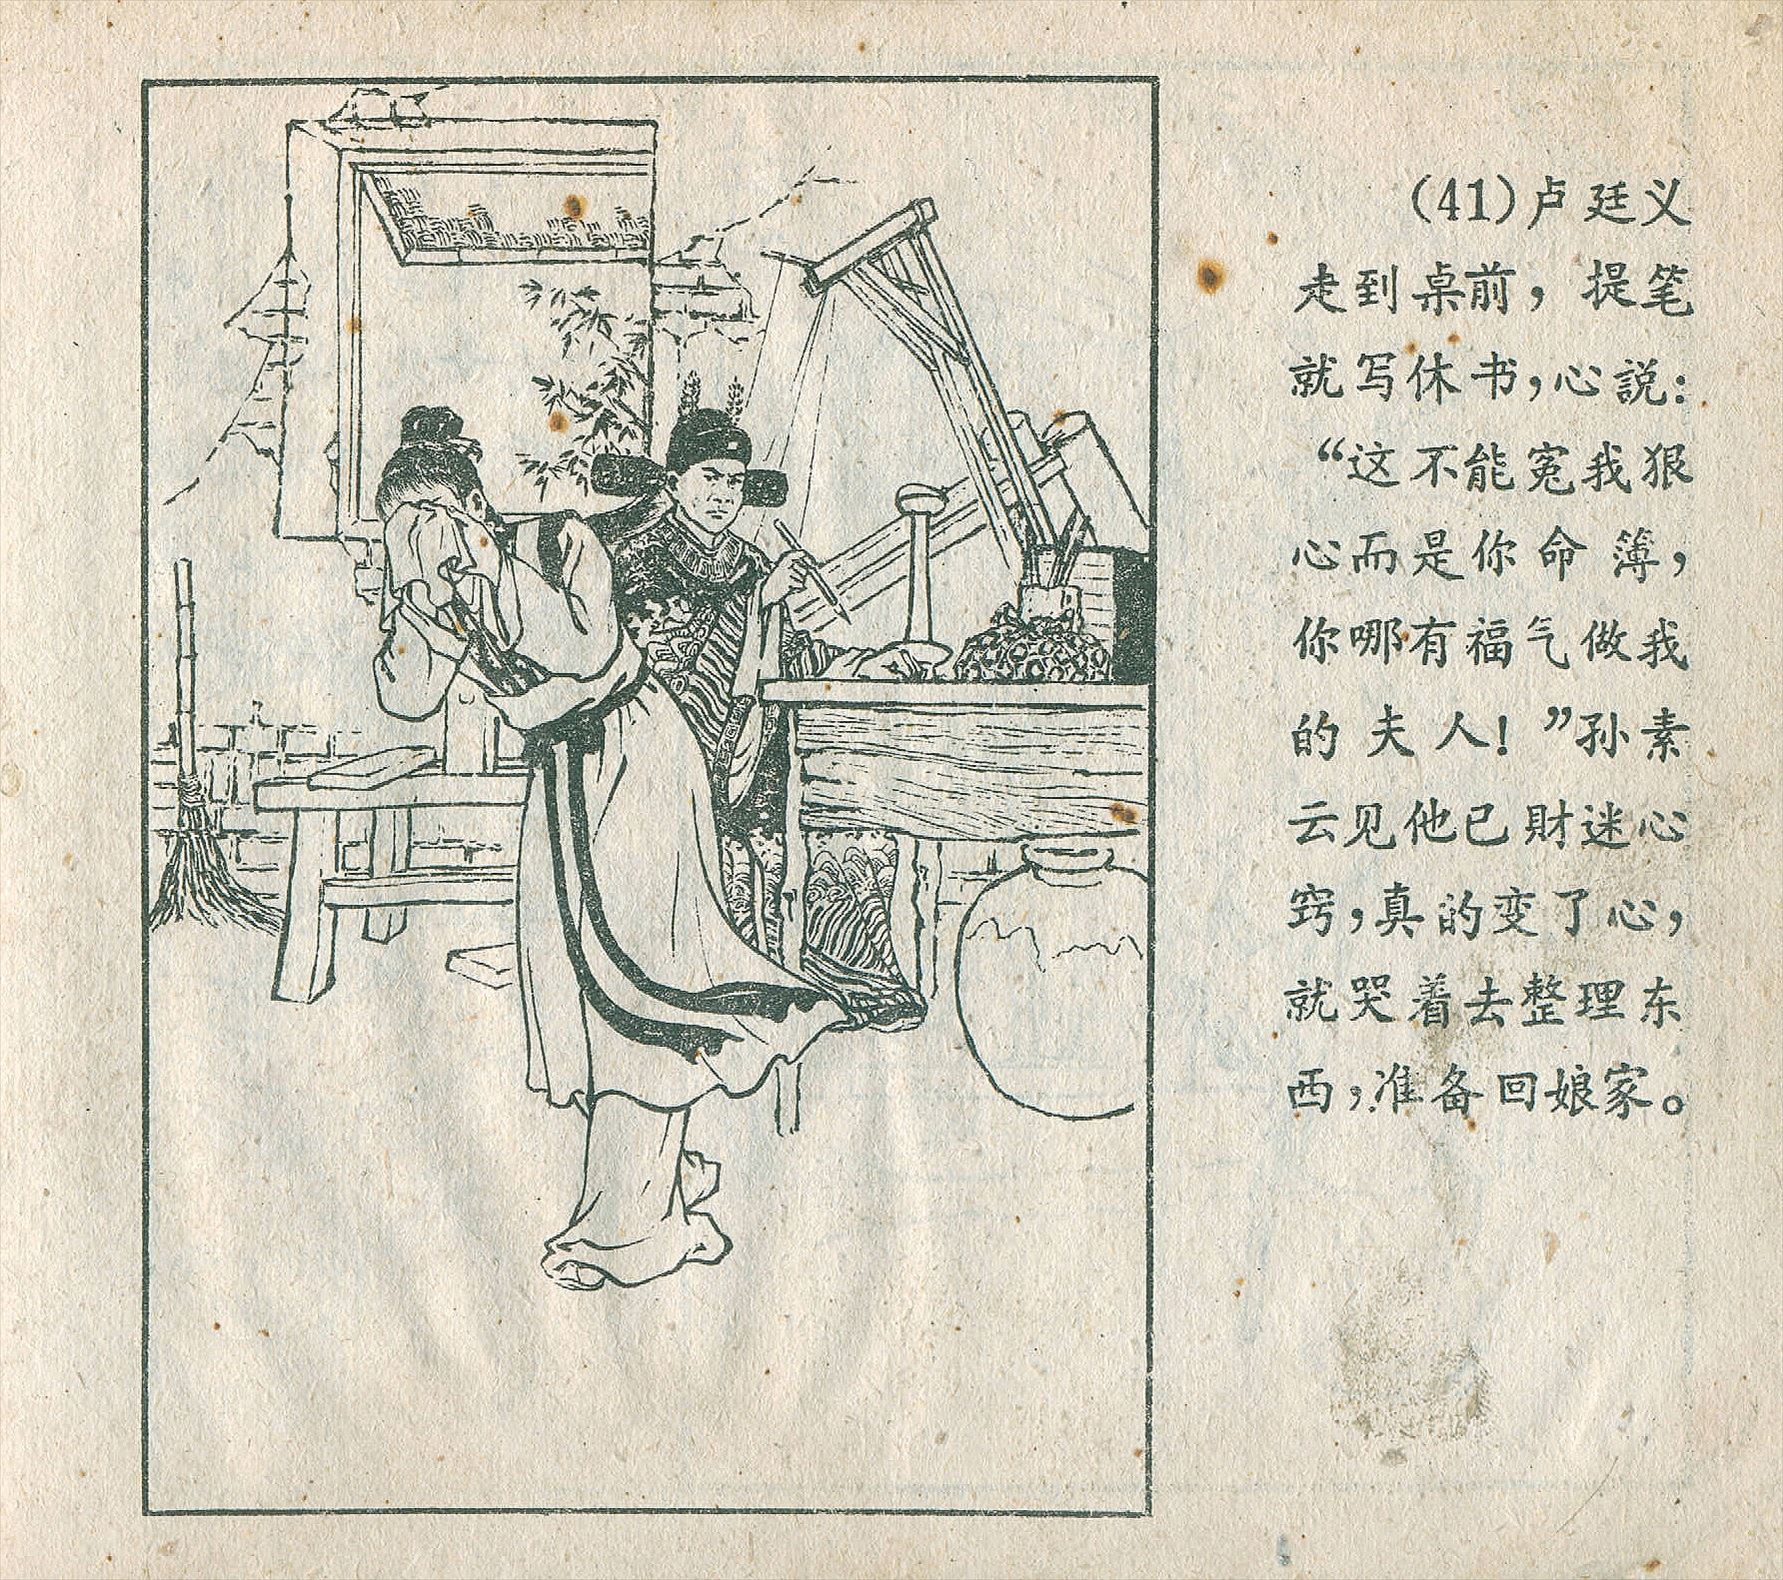 (41)卢廷义
走到桌前，提笔
就写休书，心説：
“这不能冤我狠
心而是你命簿，
你哪有福气做我
的夫人！”孙素
云见他已財迷心
窍，真的变了心，
就哭着去整理东
西，准备回娘家。